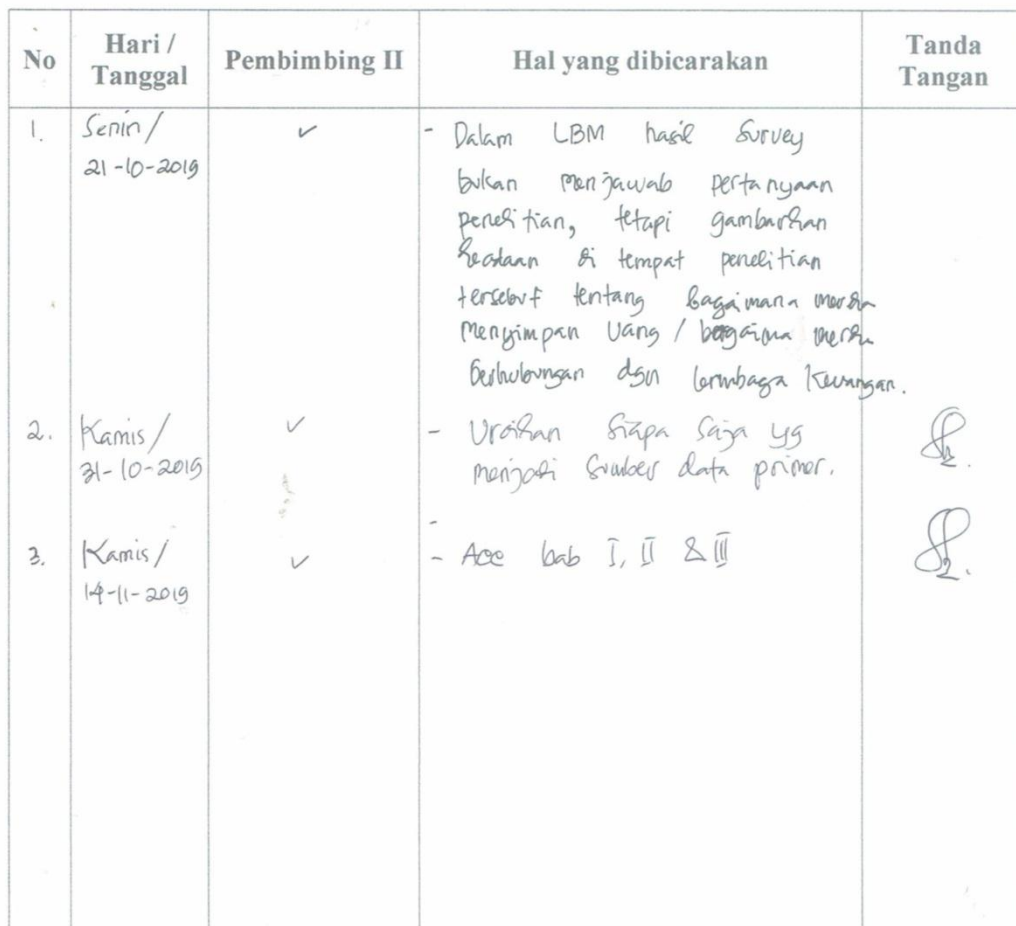 No Hari / Tanggal Pembimbing II Hal yang dibicarakan Tanda Tangan
1. Senin / ✓ - Dalam LBM hasil Survey
21-10-2019 bukan menjawab pertanyaan
penelitian, tetapi gambarkan
keadaan di tempat penelitian
tersebut tentang bagaimana mereka
menyimpan uang / bagaima mereka
berhubungan dgn lembaga keuangan.
2. Kamis / ✓ - Uraikan siapa saja yg
31-10-2019 menjadi sumber data primer.
-
3. Kamis / ✓ - Acc bab I, II & III
14-11-2019